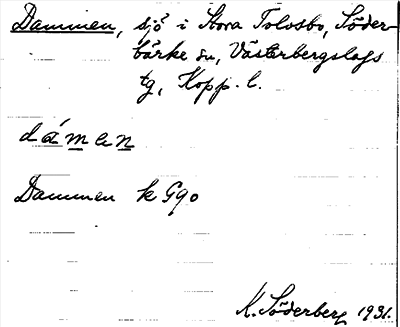 Dammen, sjö i Stora Tolvsbo, Söder-
bärke sn, Västerbergslags
tg, Kopp. l.
dámen
Dammen k Gqo
K. Söderberg 1931.